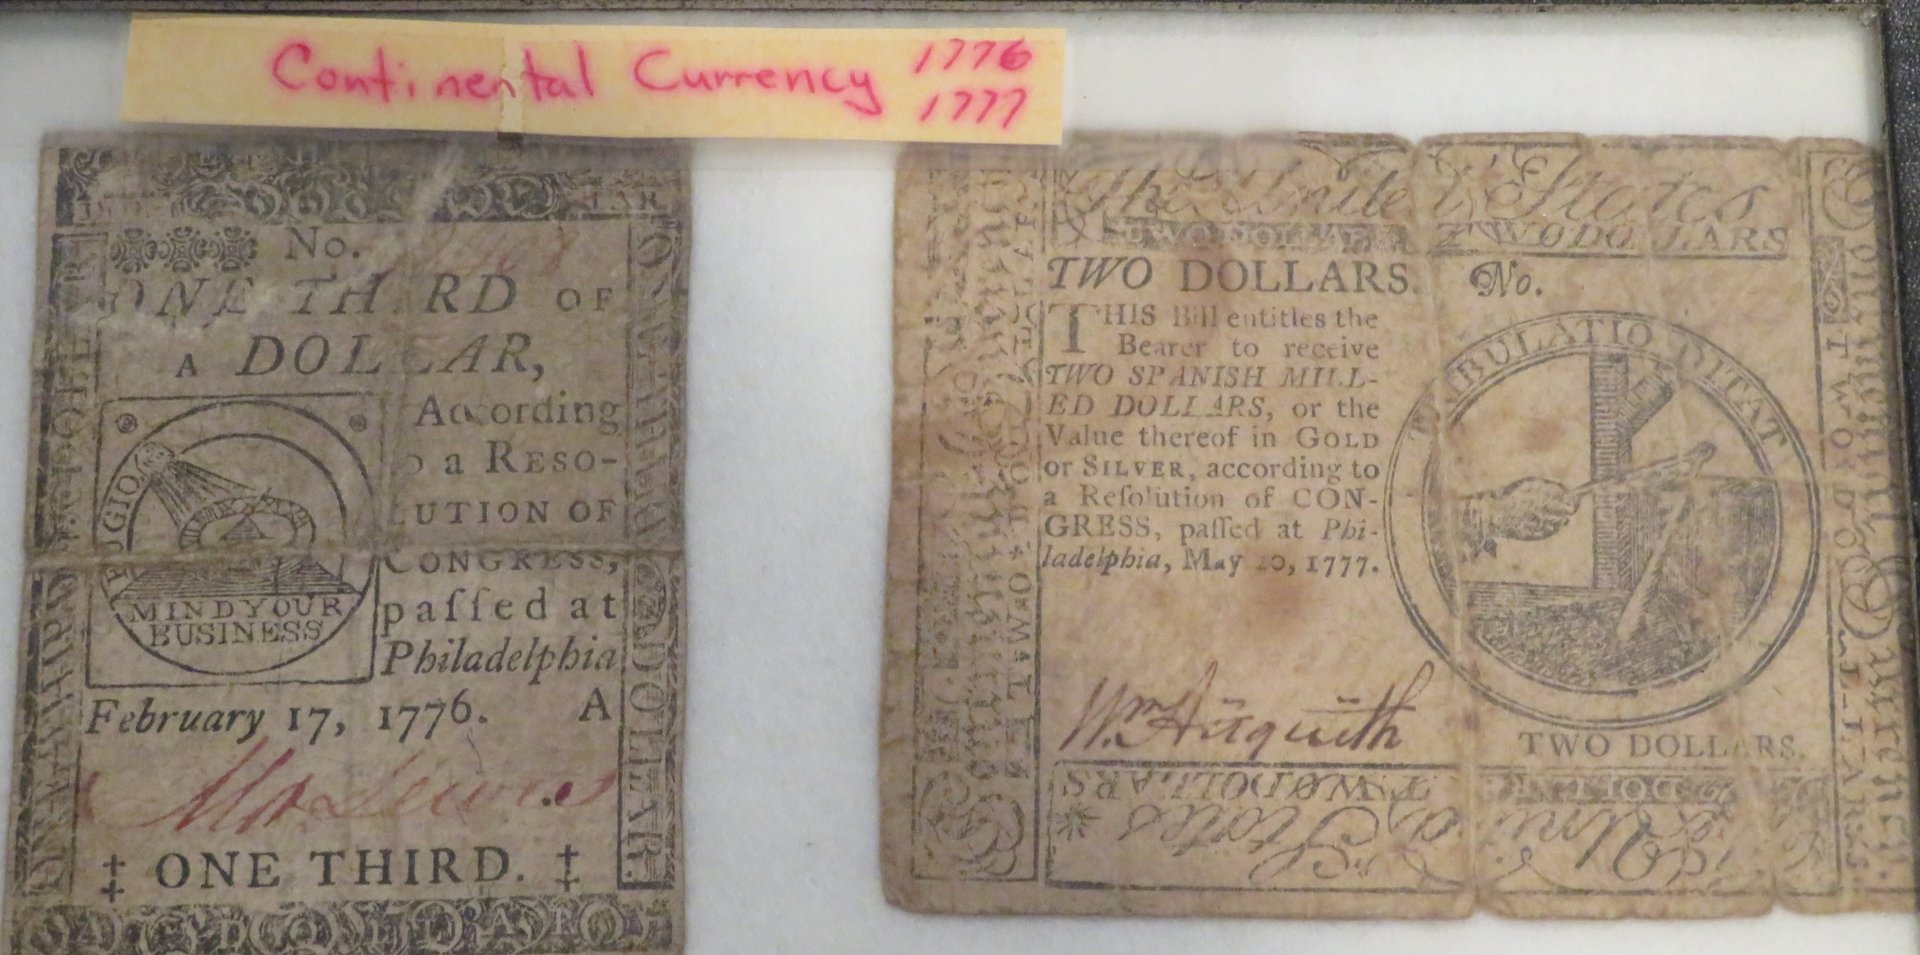 Continental Currency 1776
1777
No.
ONE THIRD OF
A DOLLAR,
According
a RESO-
LUTION OF
CONGRESS,
paſſed at
Philadelphia
February 17, 1776. A
FUGIO
MIND YOUR
BUSINESS
ONE THIRD.
DOLLAR.
The United States
TWO DOLLARS TWO DOLLARS
TWO DOLLARS. No.
THIS Bill entitles the
Bearer to receive
TWO SPANISH MILL-
ED DOLLARS, or the
Value thereof in GOLD
or SILVER, according to
a Reſolution of CON-
GRESS, paſſed at Phi-
ladelphia, May 20, 1777.
TRIBULATIO DITAT
Wm. Asquith
TWO DOLLARS.
TWO DOLLARS
States
TWO DOLLARS.
Continental Currency